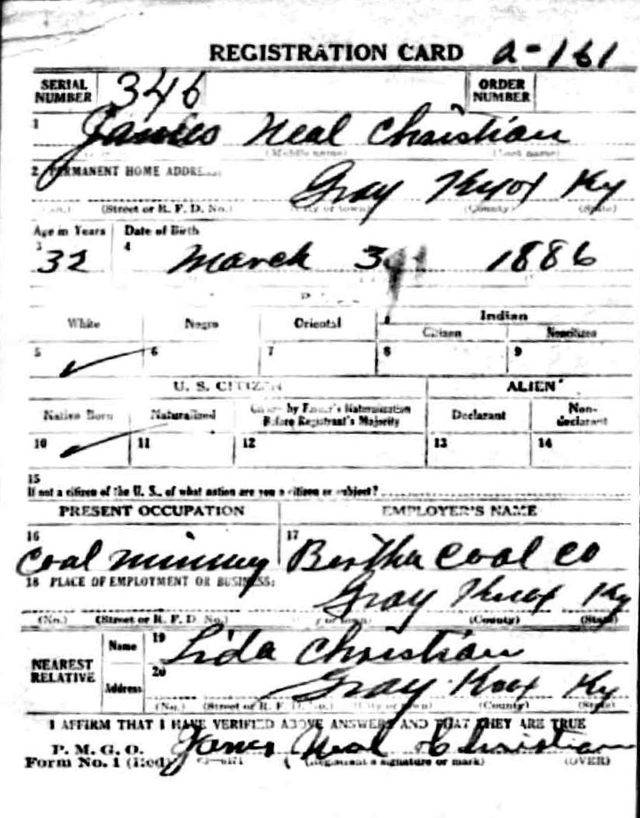 REGISTRATION CARD a-161
SERIAL NUMBER 346 ORDER NUMBER
1 James Neal Christian
(Middle name) (Last name)
2 PERMANENT HOME ADDRESS:
Gray Knox Ky
(No.) (Street or R. F. D. No.) (City or town) (County) (State)
Age in Years Date of Birth
3 32 4 March 31 1886
White Negro Oriental Indian
Citizen Noncitizen
5 ✓ 6 7 8 9
U. S. CITIZEN ALIEN
Native Born Naturalized Citizen by Father's Naturalization Before Registrant's Majority Declarant Non-declarant
10 ✓ 11 12 13 14
15
If not a citizen of the U. S., of what nation are you a citizen or subject?
PRESENT OCCUPATION EMPLOYER'S NAME
16 Coal mining 17 Bertha Coal Co
18 PLACE OF EMPLOYMENT OR BUSINESS:
Gray Knox Ky
(No.) (Street or R. F. D. No.) (City or town) (County) (State)
NEAREST RELATIVE Name 19 Lida Christian
Address 20 Gray Knox Ky
(No.) (Street or R. F. D. No.) (City or town) (County) (State)
I AFFIRM THAT I HAVE VERIFIED ABOVE ANSWERS AND THAT THEY ARE TRUE
P. M. G. O.
Form No. 1 (Red) James Neal Christian
(Registrant's signature or mark) (OVER)